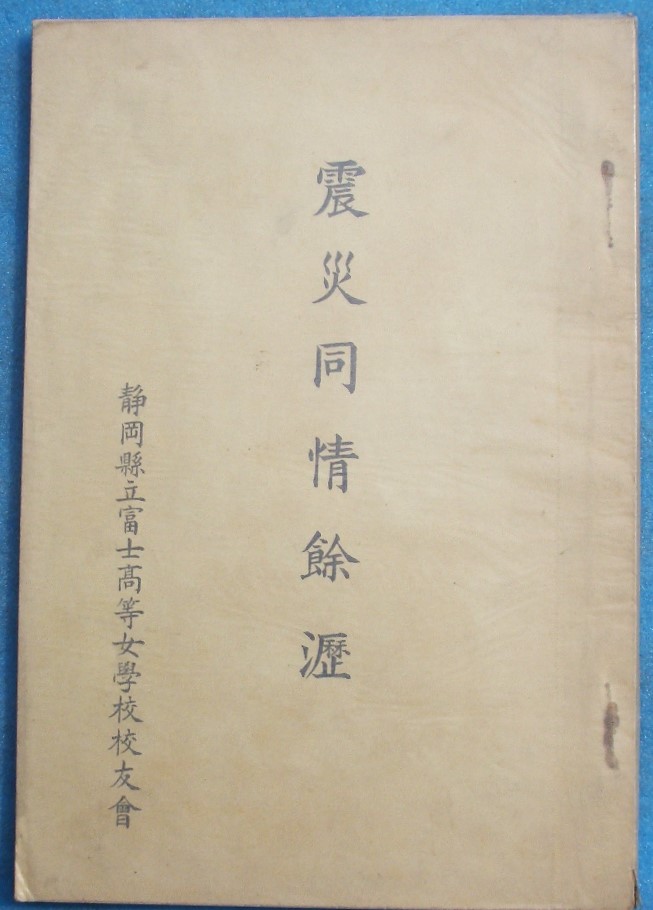 震災同情餘瀝
静岡縣立富士髙等女學校校友會